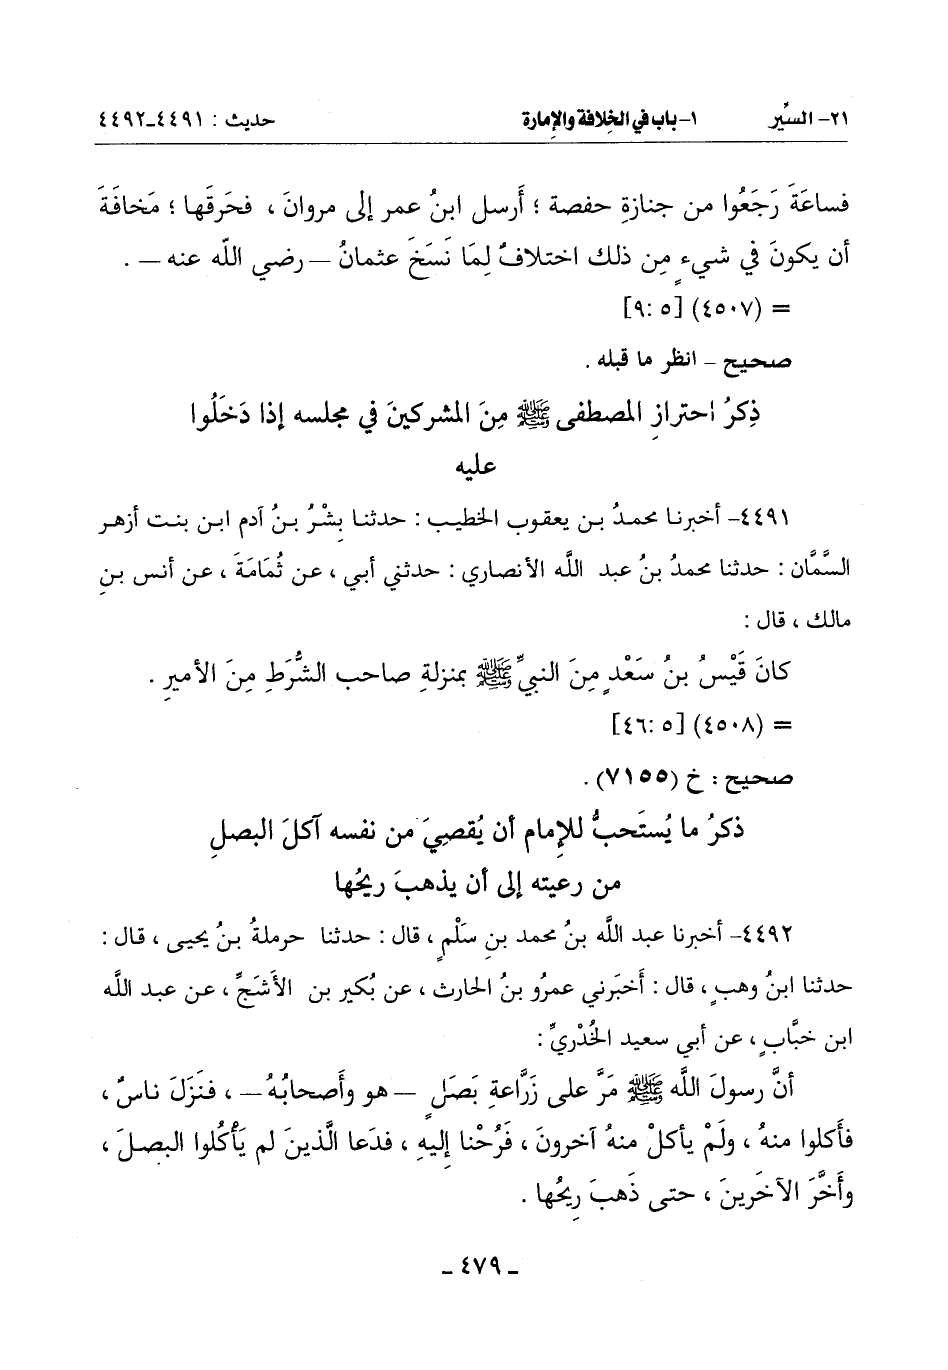 ٢١- السِّير ١- باب في الخِلافة والإمارة حديث : ٤٤٩١-٤٤٩٢
فساعَةَ رَجَعُوا من جنازةِ حفصة ؛ أَرسل ابنُ عمر إلى مروانَ ، فحَرقَها ؛ مَخافَةَ
أن يكونَ في شيءٍ مِن ذلك اختلافٌ لِمَا نَسَخَ عثمانُ – رضي الله عنه – .
= (٤٥٠٧) [٥ :٩]
صحيح – انظر ما قبله .
ذِكرُ احترازِ المصطفى ﷺ مِنَ المشركينَ في مجلسه إذا دَخَلُوا
عليه
٤٤٩١- أخبرنا محمدُ بن يعقوب الخطيب : حدثنا بِشْرُ بنُ آدم ابن بنت أزهر
السَّمَّان : حدثنا محمدُ بنُ عبد اللَّه الأنصاري : حدثني أبي ، عن ثُمَامَةَ ، عن أنس بنِ
مالك ، قال :
كانَ قَيْسُ بنُ سَعْدٍ مِنَ النبيِّ ﷺ بمنزلةِ صاحب الشُّرَطِ مِنَ الأميرِ .
= (٤٥٠٨) [٥ :٤٦]
صحيح : خ (٧١٥٥) .
ذكرُ ما يُستَحبُّ للإِمام أن يُقصِيَ من نفسه آكلَ البصلِ
من رعيته إلى أن يذهبَ ريحُها
٤٤٩٢- أخبرنا عبد اللَّه بنُ محمد بنِ سَلْمٍ ، قال : حدثنا حرملةُ بنُ يحيى ، قال :
حدثنا ابنُ وهبٍ ، قال : أَخبَرني عمرُو بنُ الحارث ، عن بُكير بن الأَشَجِّ ، عن عبد اللَّه
ابن خبَّابٍ ، عن أبي سعيد الخُدْريِّ :
أنَّ رسولَ اللَّه ﷺ مَرَّ على زَرَّاعةِ بَصَلٍ – هو وأَصحابُهُ – ، فنَزَلَ ناسٌ ،
فأَكلوا منهُ ، ولَمْ يأكلْ منهُ آخرونَ ، فَرُحْنا إليهِ ، فدَعا الَّذينَ لم يَأْكُلوا البصلَ ،
وأَخَّرَ الآخَرينَ ، حتى ذَهبَ رِيحُها .
– ٤٧٩ –